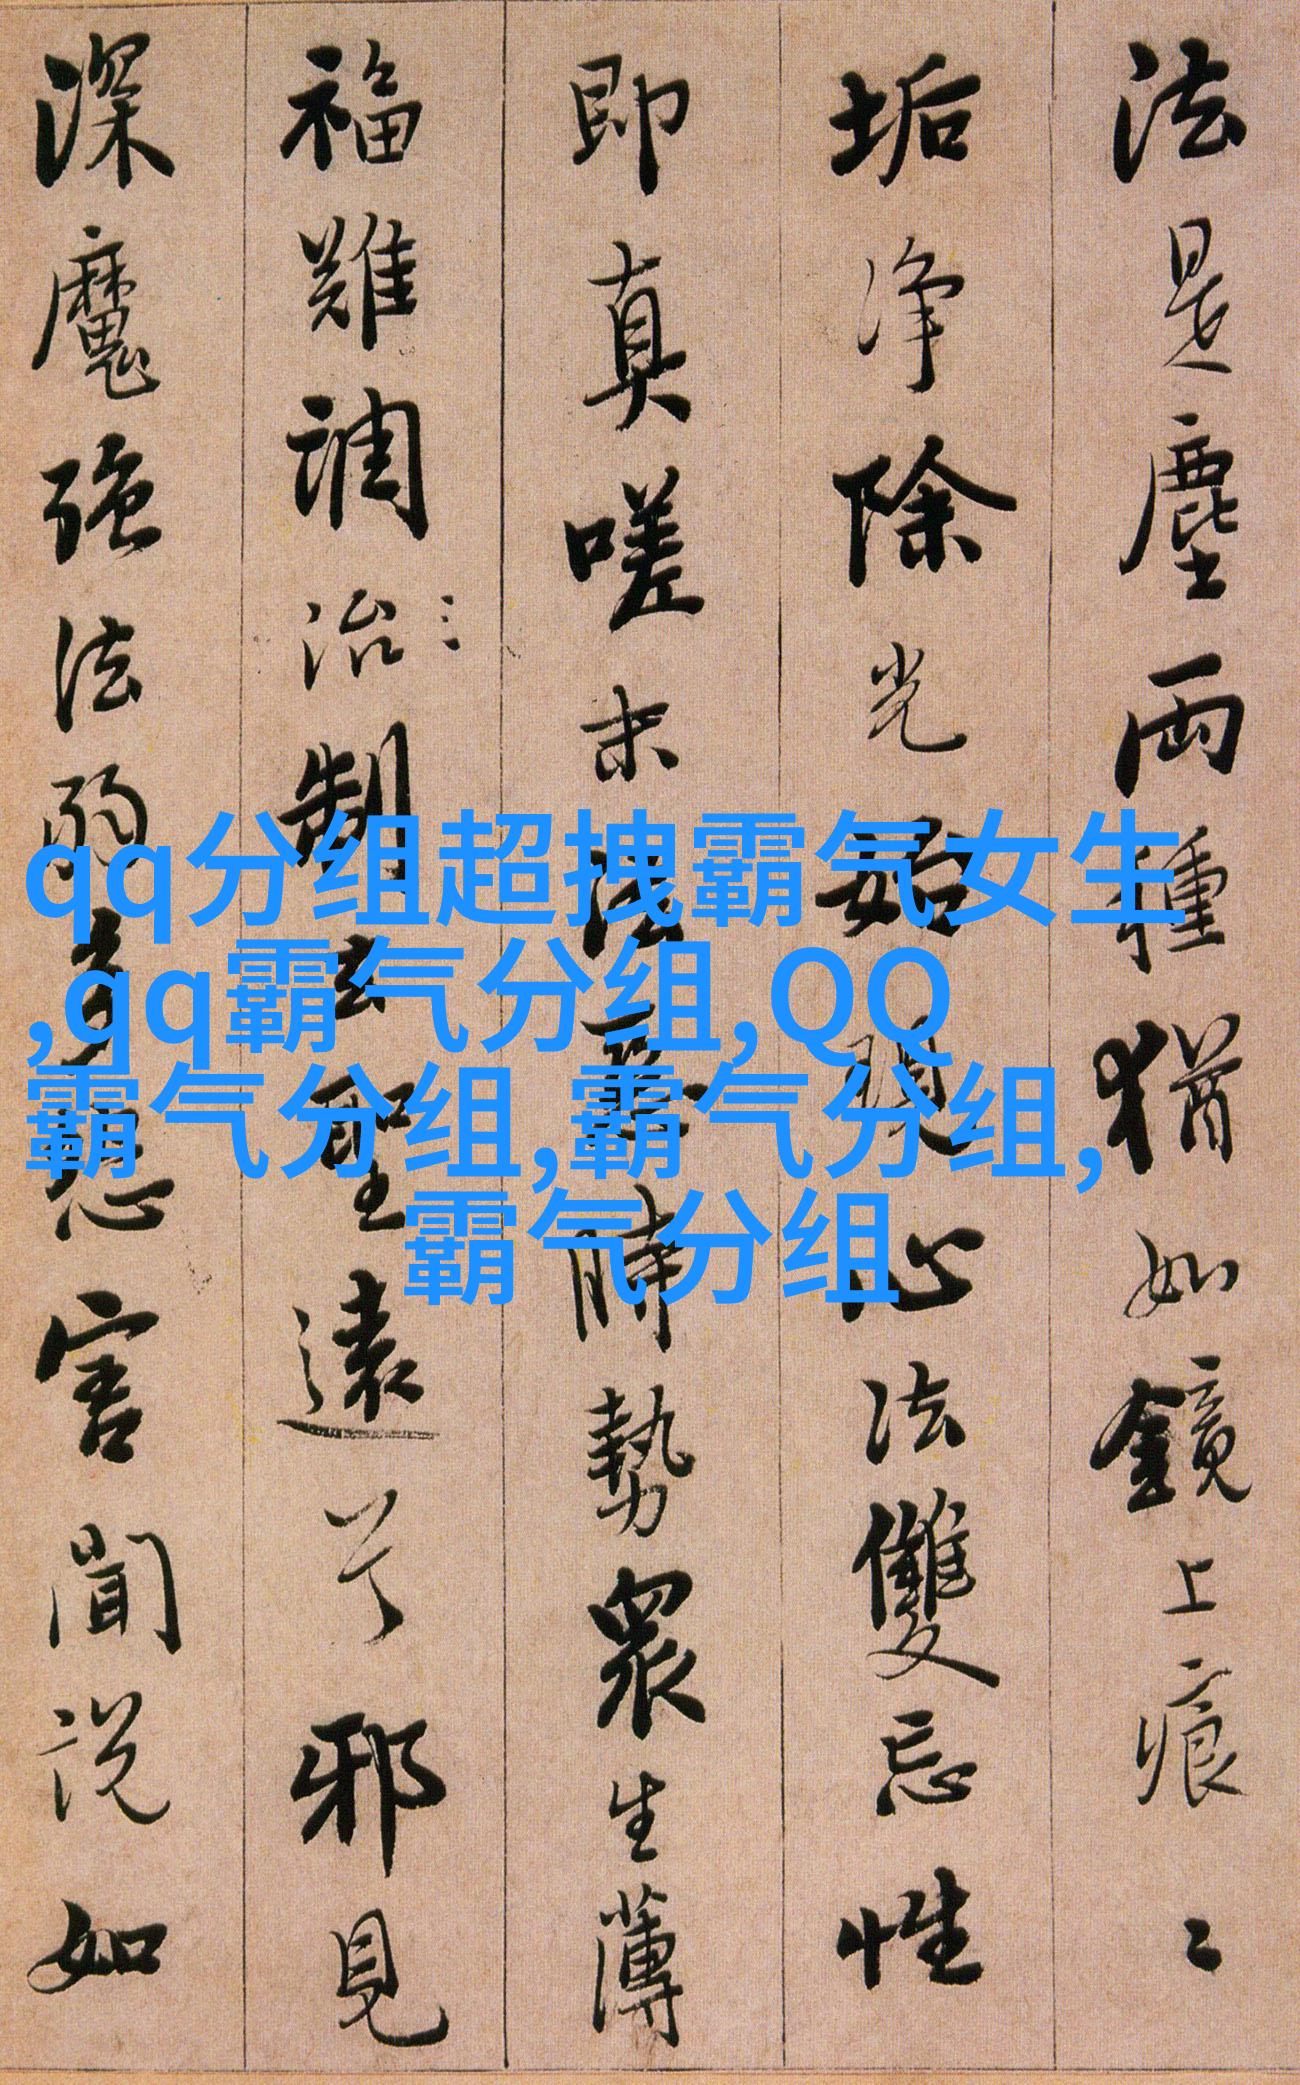 法是塵兩種猶如鏡上痕〻
垢淨除光始現心法雙忘性
即真嗟末法惡時勢衆生薄
福難調治制去聖遠兮邪見
深魔強法弱多害聞說如
qq分组超拽霸气女生
,qq霸气分组,QQ
霸气分组,霸气分组,
霸气分组